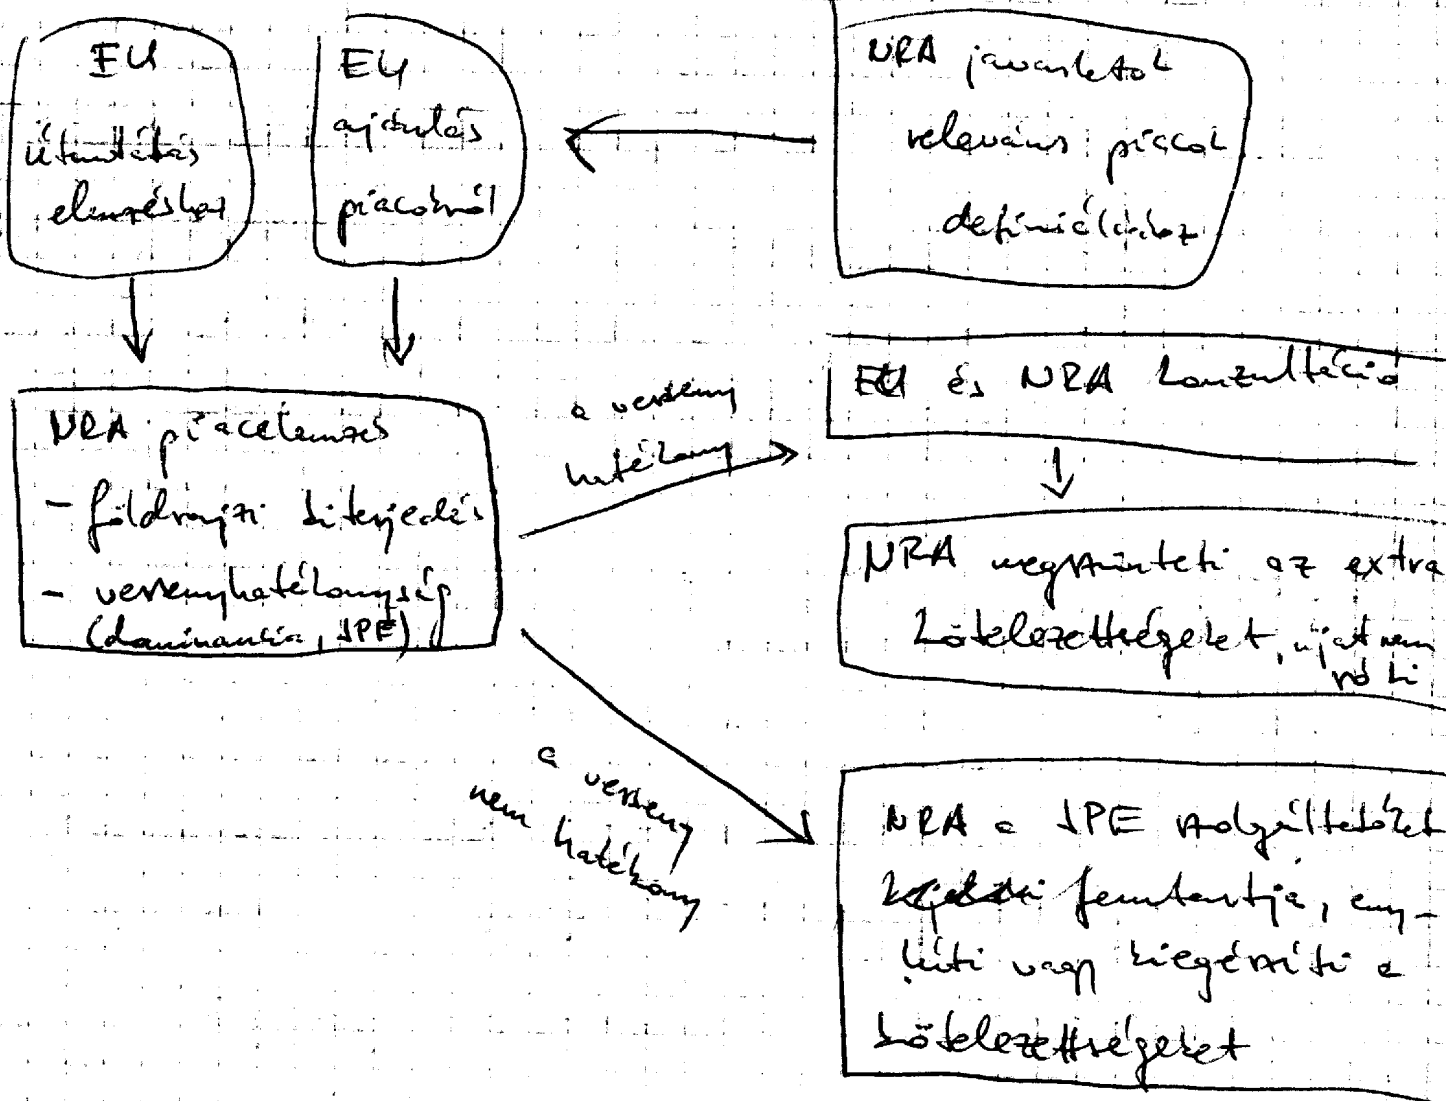 EU
útmutatás
elemzéshez
EU
ajánlás
piacokról
NRA javaslatok
releváns piacok
definiálásához
NRA piacelemzés
- földrajzi kiterjedés
- versenyhatékonyság
(dominancia, JPE)
a verseny
hatékony
EU és NRA konzultáció
NRA megszünteti az extra
kötelezettségeket, újat nem
ró ki
a verseny
nem hatékony
NRA a JPE szolgáltatókat
fenntartja, eny-
híti vagy kiegészíti a
kötelezettségeket